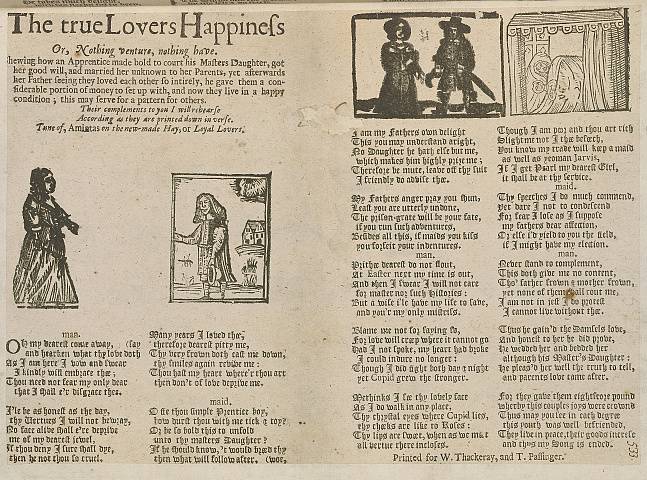 The true Lovers Happiness
Or, Nothing venture, nothing have.
hewing how an Apprentice made bold to court his Masters Daughter, got
her good will, and married her unknown to her Parents, yet afterwards
her Father seeing they loved each other so intirely, he gave them a con-
siderable portion of money to set up with, and now they live in a happy
condition; this may serve for a pattern for others.
Their complements to you I will rehearse
According as they are printed down in verse.
Tune of, Amintas on the new-made Hay, or Loyal Lovers.
man.
Oh my dearest come away, (say
and hearken what thy love doth
As I am here I vow and swear
I kindly will embrace thee;
Thou need not fear my only dear
that I shall e'r disgrace thee.
I'le be as honest as the day,
thy Vertues I will not betray,
No face alive shall e're deprive
me of my dearest jewel,
If thou deny I sure shall dye,
then be not thou so cruel.
Many years I loved thee,
therefore dearest pitty me,
Thy very frown doth cast me down,
thy smiles again revive me:
Thou hast my heart where'r thou art
then don't of love deprive me.
maid.
O fie thou simple Prentice boy,
how durst thou with me tick a toy?
Or be so bold this to unfold
unto thy masters Daughter?
If he should know, 't would breed thy
then what will follow after. (woe,
I am my Fathers own delight
This you may understand aright,
No Daughter he hath else but me,
which makes him highly prize me;
Therefore be mute, leave off thy suit
I friendly do advise thee.
My Fathers anger pray you shun,
Least you are utterly undone,
The prison-grate will be your fate,
if you run such adventures,
Besides all this, if maids you kiss
you forfeit your indentures.
man.
Prithee dearest do not flout,
At Easter next my time is out,
And then I swear I will not care
for master nor such Histories:
But a wife i'le have my life to save,
and you'r my only mistriss.
Blame we not for saying so,
For love will creep where it cannot go
Had I not spoke, my heart had broke
I could indure no longer:
Though I did sight both day & night
yet Cupid grew the stronger.
Methinks I see thy lovely face
As I do walk in any place,
Thy christal eyes where Cupid lies,
thy cheeks are like to Roses:
Thy lips are sweet, when as we meet
all vertue there incloses.
Though I am poor and thou art rich
Slight me not I thee beseech,
You know my trade will keep a maid
as well as yeoman Jarvis,
If I get Pearl my dearest Girl,
it shall be at thy service.
maid.
Thy speeches I do much commend,
yet dare I not to condescend
For fear I lose as I suppose
my fathers dear affection,
Or else I'd yield to you the field,
if I might have my election.
man.
Never stand to complement,
This doth give me no content,
Tho' father frown & mother frown,
yet none of them shall rout me,
I am not in jest I do protest
I cannot live without thee.
Thus he gain'd the Damsels love,
And honest to her he did prove,
He wedded her and bedded her
although his Master's Daughter:
He pleas'd her well the truth to tell,
and parents love came after.
For they gave them eightscore pound
whereby this couples joys were crownd
Thus may you see in each degree
this youth was well befriended,
They live in peace, their goods increase
and thus my Song is ended.
Printed for W. Thackeray, and T. Passinger.